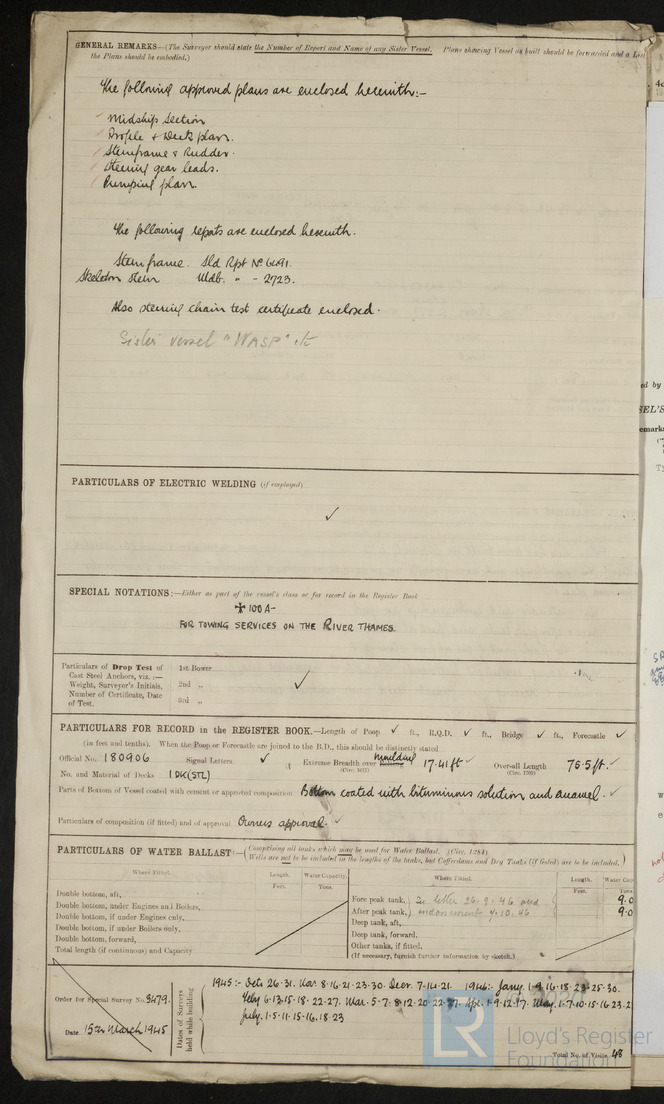 GENERAL REMARKS—(The Surveyor should state the Number of Report and Name of any Sister Vessel. Plans showing Vessel as built should be forwarded and a List
the Plans should be embodied.)
The following approved plans are enclosed herewith:-
Midship Section
Profile & Deck plan.
Sternframe & Rudder.
Steering gear leads.
Pumping plan.
The following reports are enclosed herewith.
Stern frame. Sld Rpt No 6691.
Skeleton Stem Mdb. " - 2723.
Also steering chain test certificate enclosed.
Sister vessel "WASP"
PARTICULARS OF ELECTRIC WELDING (if employed)
✓
SPECIAL NOTATIONS:—Either as part of the vessel's class or for record in the Register Book
✠ 100 A-
FOR TOWING SERVICES ON THE RIVER THAMES.
Particulars of Drop Test of
Cast Steel Anchors, viz.:—
Weight, Surveyor's Initials,
Number of Certificate, Date
of Test.
1st Bower
2nd „ ✓
3rd „
PARTICULARS FOR RECORD in the REGISTER BOOK.—Length of Poop ✓ ft., R.Q.D. ✓ ft., Bridge ✓ ft., Forecastle ✓
(in feet and tenths). When the Poop or Forecastle are joined to the B.D., this should be distinctly stated
Official No. 180906 Signal Letters ✓ Extreme Breadth over Moulded 17.41 ft ✓ Over-all Length 75.5 ft. ✓
(Circ. 1611) (Circ. 1703)
No. and Material of Decks 1 DK (STL)
Parts of Bottom of Vessel coated with cement or approved composition Bottom coated with bituminous solution and enamel. ✓
Particulars of composition (if fitted) and of approval Owners approval. ✓
PARTICULARS OF WATER BALLAST:—(Comprising all tanks which may be used for Water Ballast. (Circ. 1284)
Wells are not to be included in the lengths of the tanks, but Cofferdams and Dry Tanks (if fitted) are to be included.)
Where Fitted. Length. Water Capacity. Where Fitted. Length. Water Cap
Feet. Tons. Feet. Tons.
Double bottom, aft,
Double bottom, under Engines and Boilers,
Double bottom, if under Engines only,
Double bottom, if under Boilers only,
Double bottom, forward,
Total length (if continuous) and Capacity
Fore peak tank, In letter 26.9.46 and 9.0
After peak tank, endorsement 4.10.46 9.0
Deep tank, aft,
Deep tank, forward.
Other tanks, if fitted.
(If necessary, furnish further information by sketch.)
Order for Special Survey No. 3479.
Date 15th March 1945
Dates of Surveys
held while building
1945:- Octr 26.31. Nov. 8.16.21.23.30. Decr. 7.14.21. 1946:- Jany. 1.9.16.18.23.25.30.
Feby 6.13.15.18.22.27. Mar. 5.7.8.12.20.22.27. Apr. 1.9.12.17. May. 1.7.10.15.16.23.2
July. 1.5.11.15.16.18.23
Total No. of Visits 48
LR
Lloyd's Register
Foundation